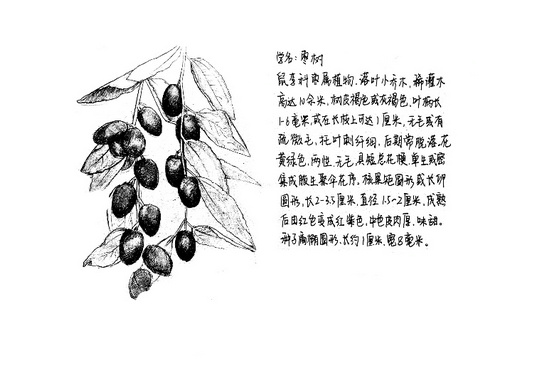 学名:枣树
鼠李科枣属植物,落叶小乔木,稀灌木
高达10余米,树皮褐色或灰褐色,叶柄长
1-6毫米,或在长枝上可达1厘米,无毛或有
疏微毛,托叶刺纤细,后期常脱落。花
黄绿色,两性,无毛,具短总花梗,单生或密
集成腋生聚伞花序。核果矩圆形或长卵
圆形,长2-3.5厘米,直径1.5-2厘米,成熟
后由红色变成红紫色,中果皮肉厚,味甜。
种子扁椭圆形,长约1厘米,宽8毫米。